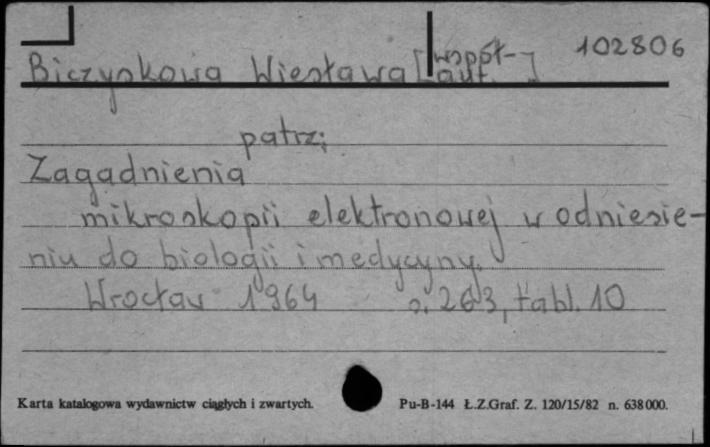 102806
Biczyskowa Wiesława [współ-
aut.]
patrz;
Zagadnienia
mikroskopii elektronowej w odniesie-
niu do biologii i medycyny.
Wrocław 1964 s. 263, tabl. 10
Karta katalogowa wydawnictw ciągłych i zwartych. Pu-B-144 Ł.Z.Graf. Z. 120/15/82 n. 638000.